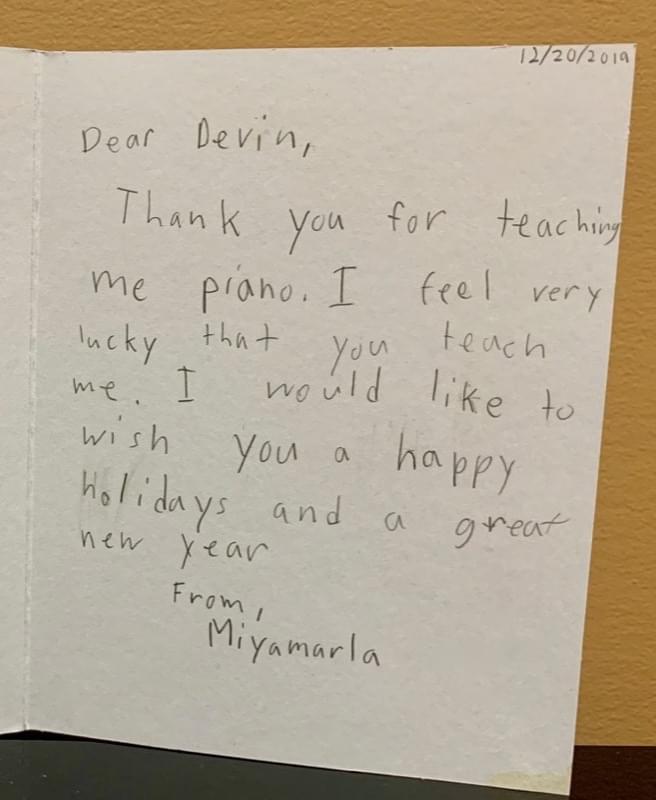 12/20/2019
Dear Devin,
Thank you for teaching
me piano. I feel very
lucky that you teach
me. I would like to
wish you a happy
holidays and a great
new year
From,
Miyamarla